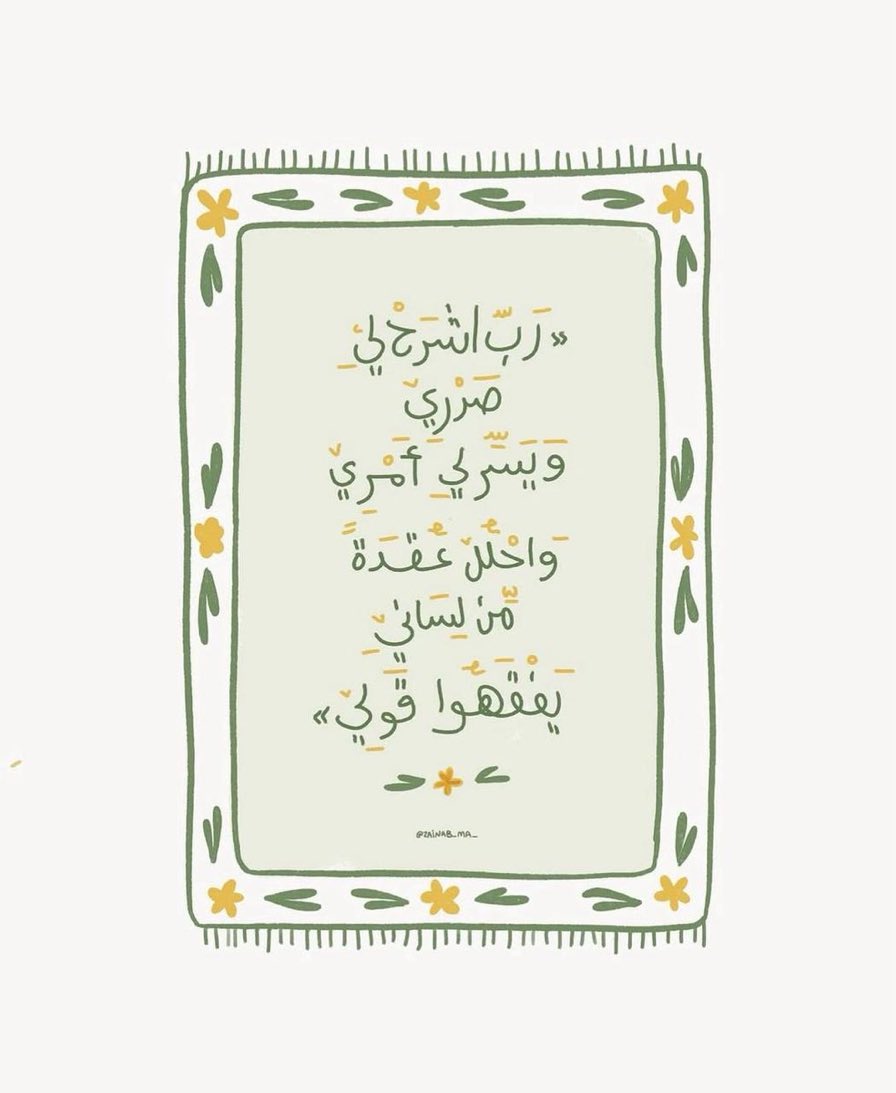 «رَبِّ اشْرَحْ لِي
صَدْرِي
وَيَسِّرْ لِي أَمْرِي
وَاحْلُلْ عُقْدَةً
مِّن لِّسَانِي
يَفْقَهُوا قَوْلِي»
@ZAINAB_MA_